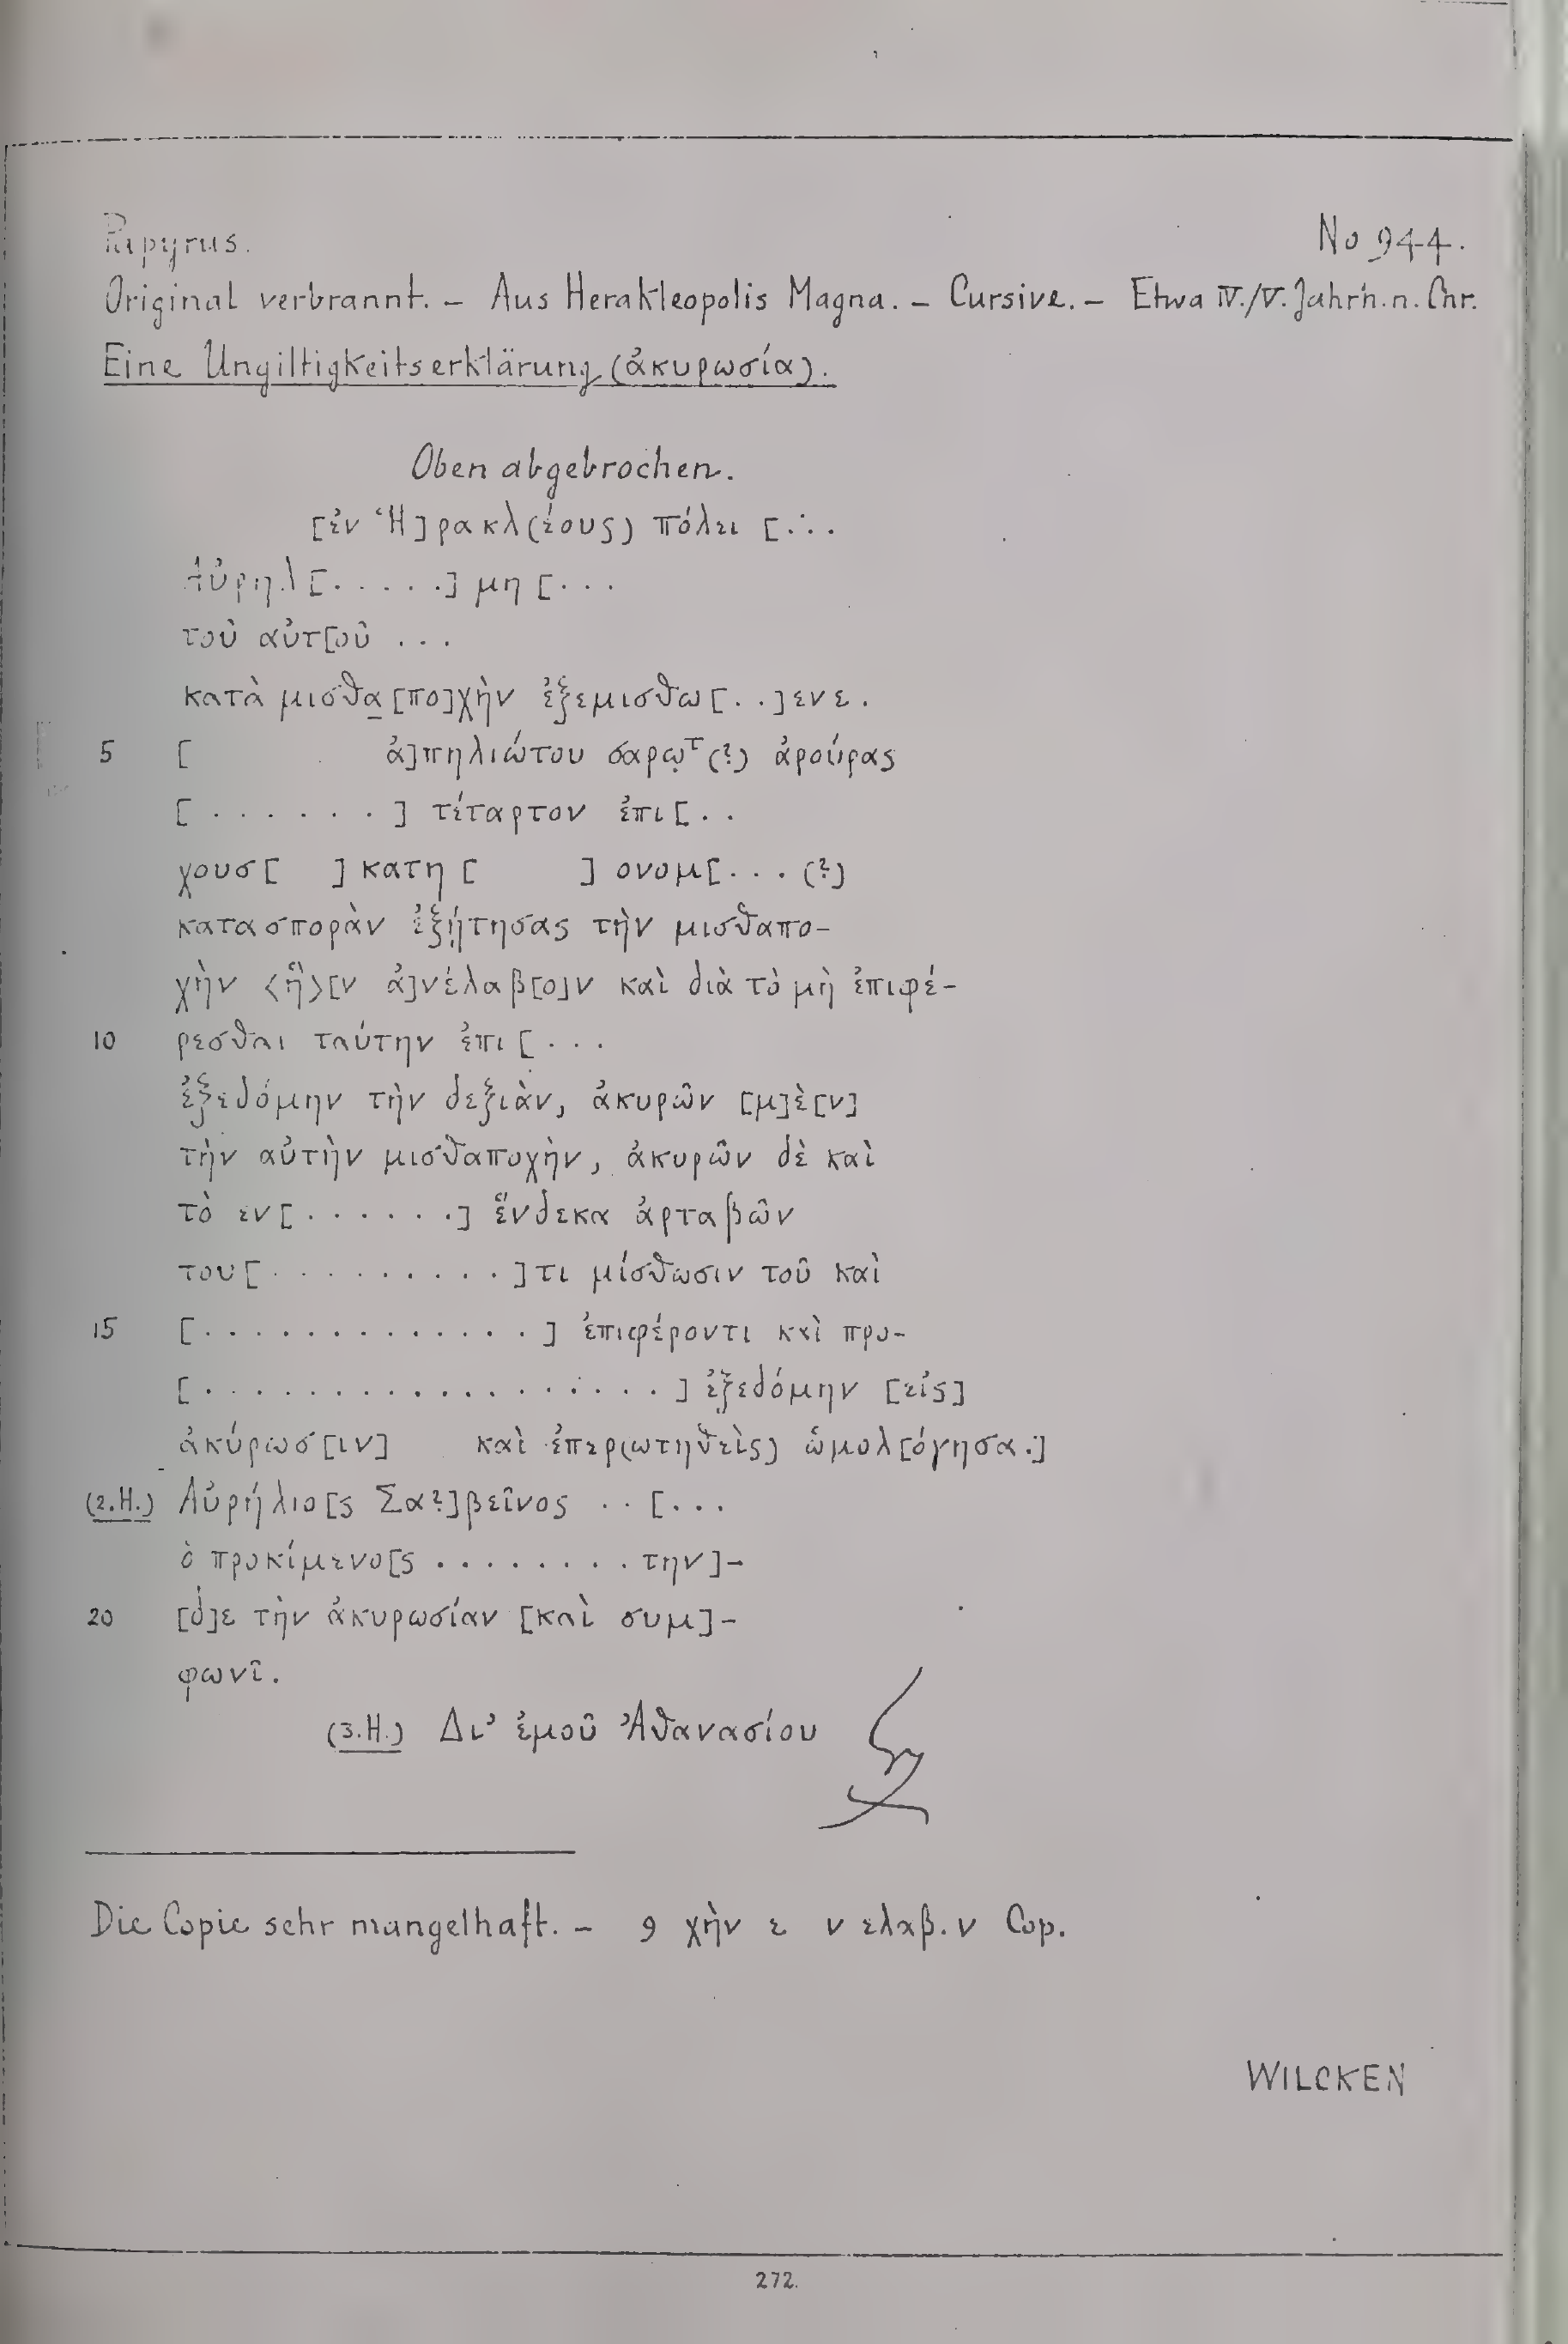 Papyrus. No 944.
Original verbrannt. – Aus Herakleopolis Magna. – Cursive. – Etwa IV./V. Jahrh. n. Chr.
Eine Ungiltigkeitserklärung (ἀκυρωσία).
Oben abgebrochen.
[ἐν Ἡ]ρακλ(έους) πόλει [...
Αὐρηλ[.....] μη [...
τοῦ αὐτ[οῦ ...
κατὰ μισθα[πο]χὴν ἐξεμισθω[..]ενε.
5 [ ἀ]πηλιώτου σαρῳτ(?) ἀρούρας
[.......] τέταρτον ἐπι[..
χουσ[ ] κατη [ ] ονομ[... (?)
κατασπορὰν ἐξῄτησας τὴν μισθαπο-
χὴν <ἣ>[ν ἀ]νέλαβ[ο]ν καὶ διὰ τὸ μὴ ἐπιφέ-
10 ρεσθαι ταύτην ἐπι[...
ἐξεδόμην τὴν δεξιὰν, ἀκυρῶν [μ]ὲ[ν]
τὴν αὐτὴν μισθαποχὴν, ἀκυρῶν δὲ καὶ
τὸ εν[.......] ἕνδεκα ἀρταβῶν
του[..........]τι μίσθωσιν τοῦ καὶ
15 [..............] ἐπιφέροντι καὶ προ-
[...................] ἐξεδόμην [εἰς]
ἀκύρωσ[ιν] καὶ ἐπερ(ωτηθεὶς) ὡμολ[όγησα.]
(2.H.) Αὐρήλιο[ς Σα?]βεῖνος ..[...
ὁ προκίμενο[ς ........ την]-
20 [δ]ε τὴν ἀκυρωσίαν [καὶ συμ]-
φωνῖ.
(3.H.) Δι’ ἐμοῦ Ἀθανασίου
Die Copie sehr mangelhaft. – 9 χὴν ε ν ελαβ.ν Cop.
WILCKEN
272.